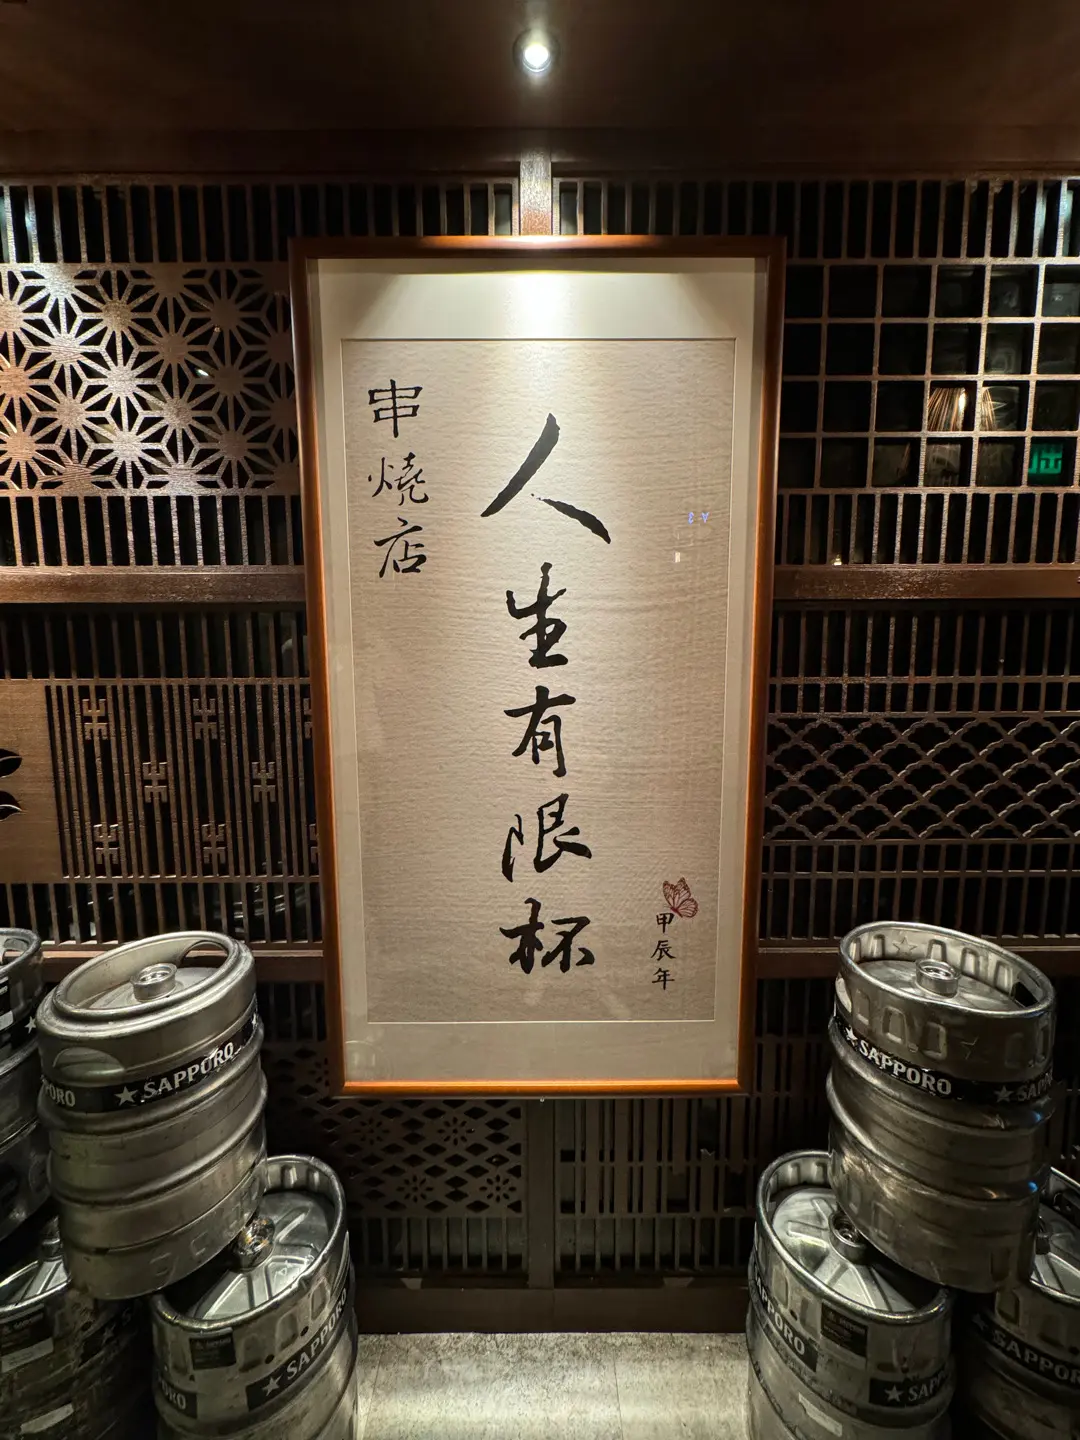 串燒店
人生有限杯
甲辰年
出
SAPPORO
PPORO
SAPPORO
SAPP
SAPPORO
SAPPORO
SAPPORO
SAPP